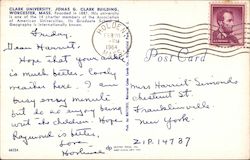 CLARK UNIVERSITY, JONAS G. CLARK BUILDING,
WORCESTER, MASS. Founded in 1887, this university
is one of the 14 charter members of the Association
of American Universities. Its Graduate School of
Geography is internationally known.
Friday.
Dear Harriet:
Hope that your ankle
is much better. Lovely
weather here. I am
busy every minute
but do so enjoy being
with the children. Hope
Raymond is better,
Love
Post Card
Miss Harriet Simonds
Chestnut St.
Franklinville
New York.
ZIP. 14737
1964
66224